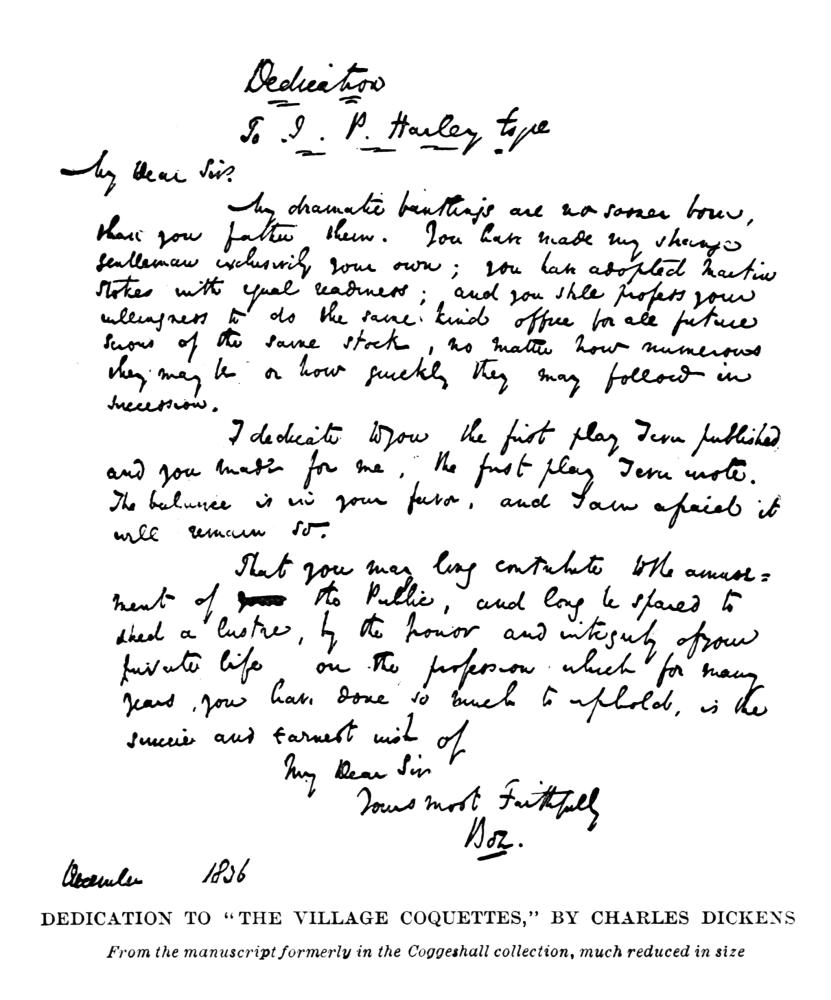 Dedication
To J. P. Harley Esqre
My Dear Sir.
My dramatic bantlings are no sooner born,
than you father them. You have made my strange
gentleman exclusively your own; you have adopted Martin
Stokes with equal readiness; and you still profess your
willingness to do the same kind office for all future
scions of the same stock, no matter how numerous
they may be or how quickly they may follow in
succession.
I dedicate to you the first play I ever published
and you made for me, the first play I ever wrote.
The balance is in your favor, and I am afraid it
will remain so.
That you may long contribute to the amuse=
ment of the Public, and long be spared to
shed a lustre, by the honor and integrity of your
private life on the profession which for many
years, you have done so much to uphold, is the
sincere and earnest wish of
My Dear Sir
Yours most Faithfully
Boz.
December 1836
DEDICATION TO "THE VILLAGE COQUETTES," BY CHARLES DICKENS
From the manuscript formerly in the Coggeshall collection, much reduced in size